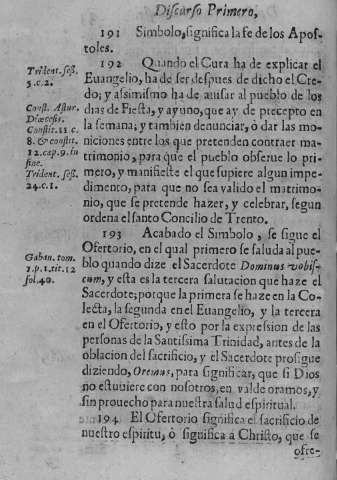 Discurso Primero,
191 Simbolo, significa la fe de los Apos-
toles.
192 Quando el Cura ha de explicar el
Euangelio, ha de ser despues de dicho el Cre-
do; y assimismo ha de auisar al pueblo de los
dias de Fiesta, y ayuno, que ay de precepto en
la semana; y tambien denunciar, ò dar las mo-
niciones entre los que pretenden contraer ma-
trimonio, para que el pueblo obserue lo pri-
mero, y manifieste el que supiere algun impe-
dimento, para que no sea valido el matrimo-
nio, que se pretende hazer, y celebrar, segun
ordena el santo Concilio de Trento.
193 Acabado el Simbolo, se sigue el
Ofertorio, en el qual primero se saluda al pue-
blo quando dize el Sacerdote Dominus vobis-
cum, y esta es la tercera salutacion que haze el
Sacerdote; porque la primera se haze en la Co-
lecta, la segunda en el Euangelio, y la tercera
en el Ofertorio, y esto por la expression de las
personas de la Santissima Trinidad, antes de la
oblacion del sacrificio, y el Sacerdote prosigue
diziendo, Oremus, para significar, que si Dios
no estuuiere con nosotros, en valde oramos, y
sin prouecho para nuestra salud espiritual.
194 El Ofertorio significa el sacrificio de
nuestro espiritu, ò significa à Christo, que se
ofre-
Trident. sess.
5. c. 2.
Const. Astur.
Diœcesis.
Constit. 11 c.
8. & constit.
12. cap. 9. in
fine.
Trident. sess.
24. c. 1.
Gaban. tom.
1. p. 1. tit. 12
fol. 40.